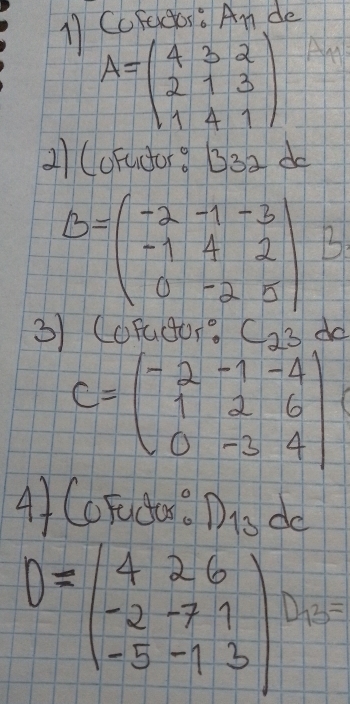 1) Cofactor: A11 de
A= ( 4 3 2 ) A11
2 1 3
1 4 1
2) Cofactor: B32 de
B= ( -2 -1 -3 )
-1 4 2 B
0 -2 5
3) Cofactor: C23 de
C= ( -2 -1 -4 )
1 2 6
0 -3 4
4) Cofactor: D13 de
D= ( 4 2 6 )
-2 -7 1 D13=
-5 -1 3